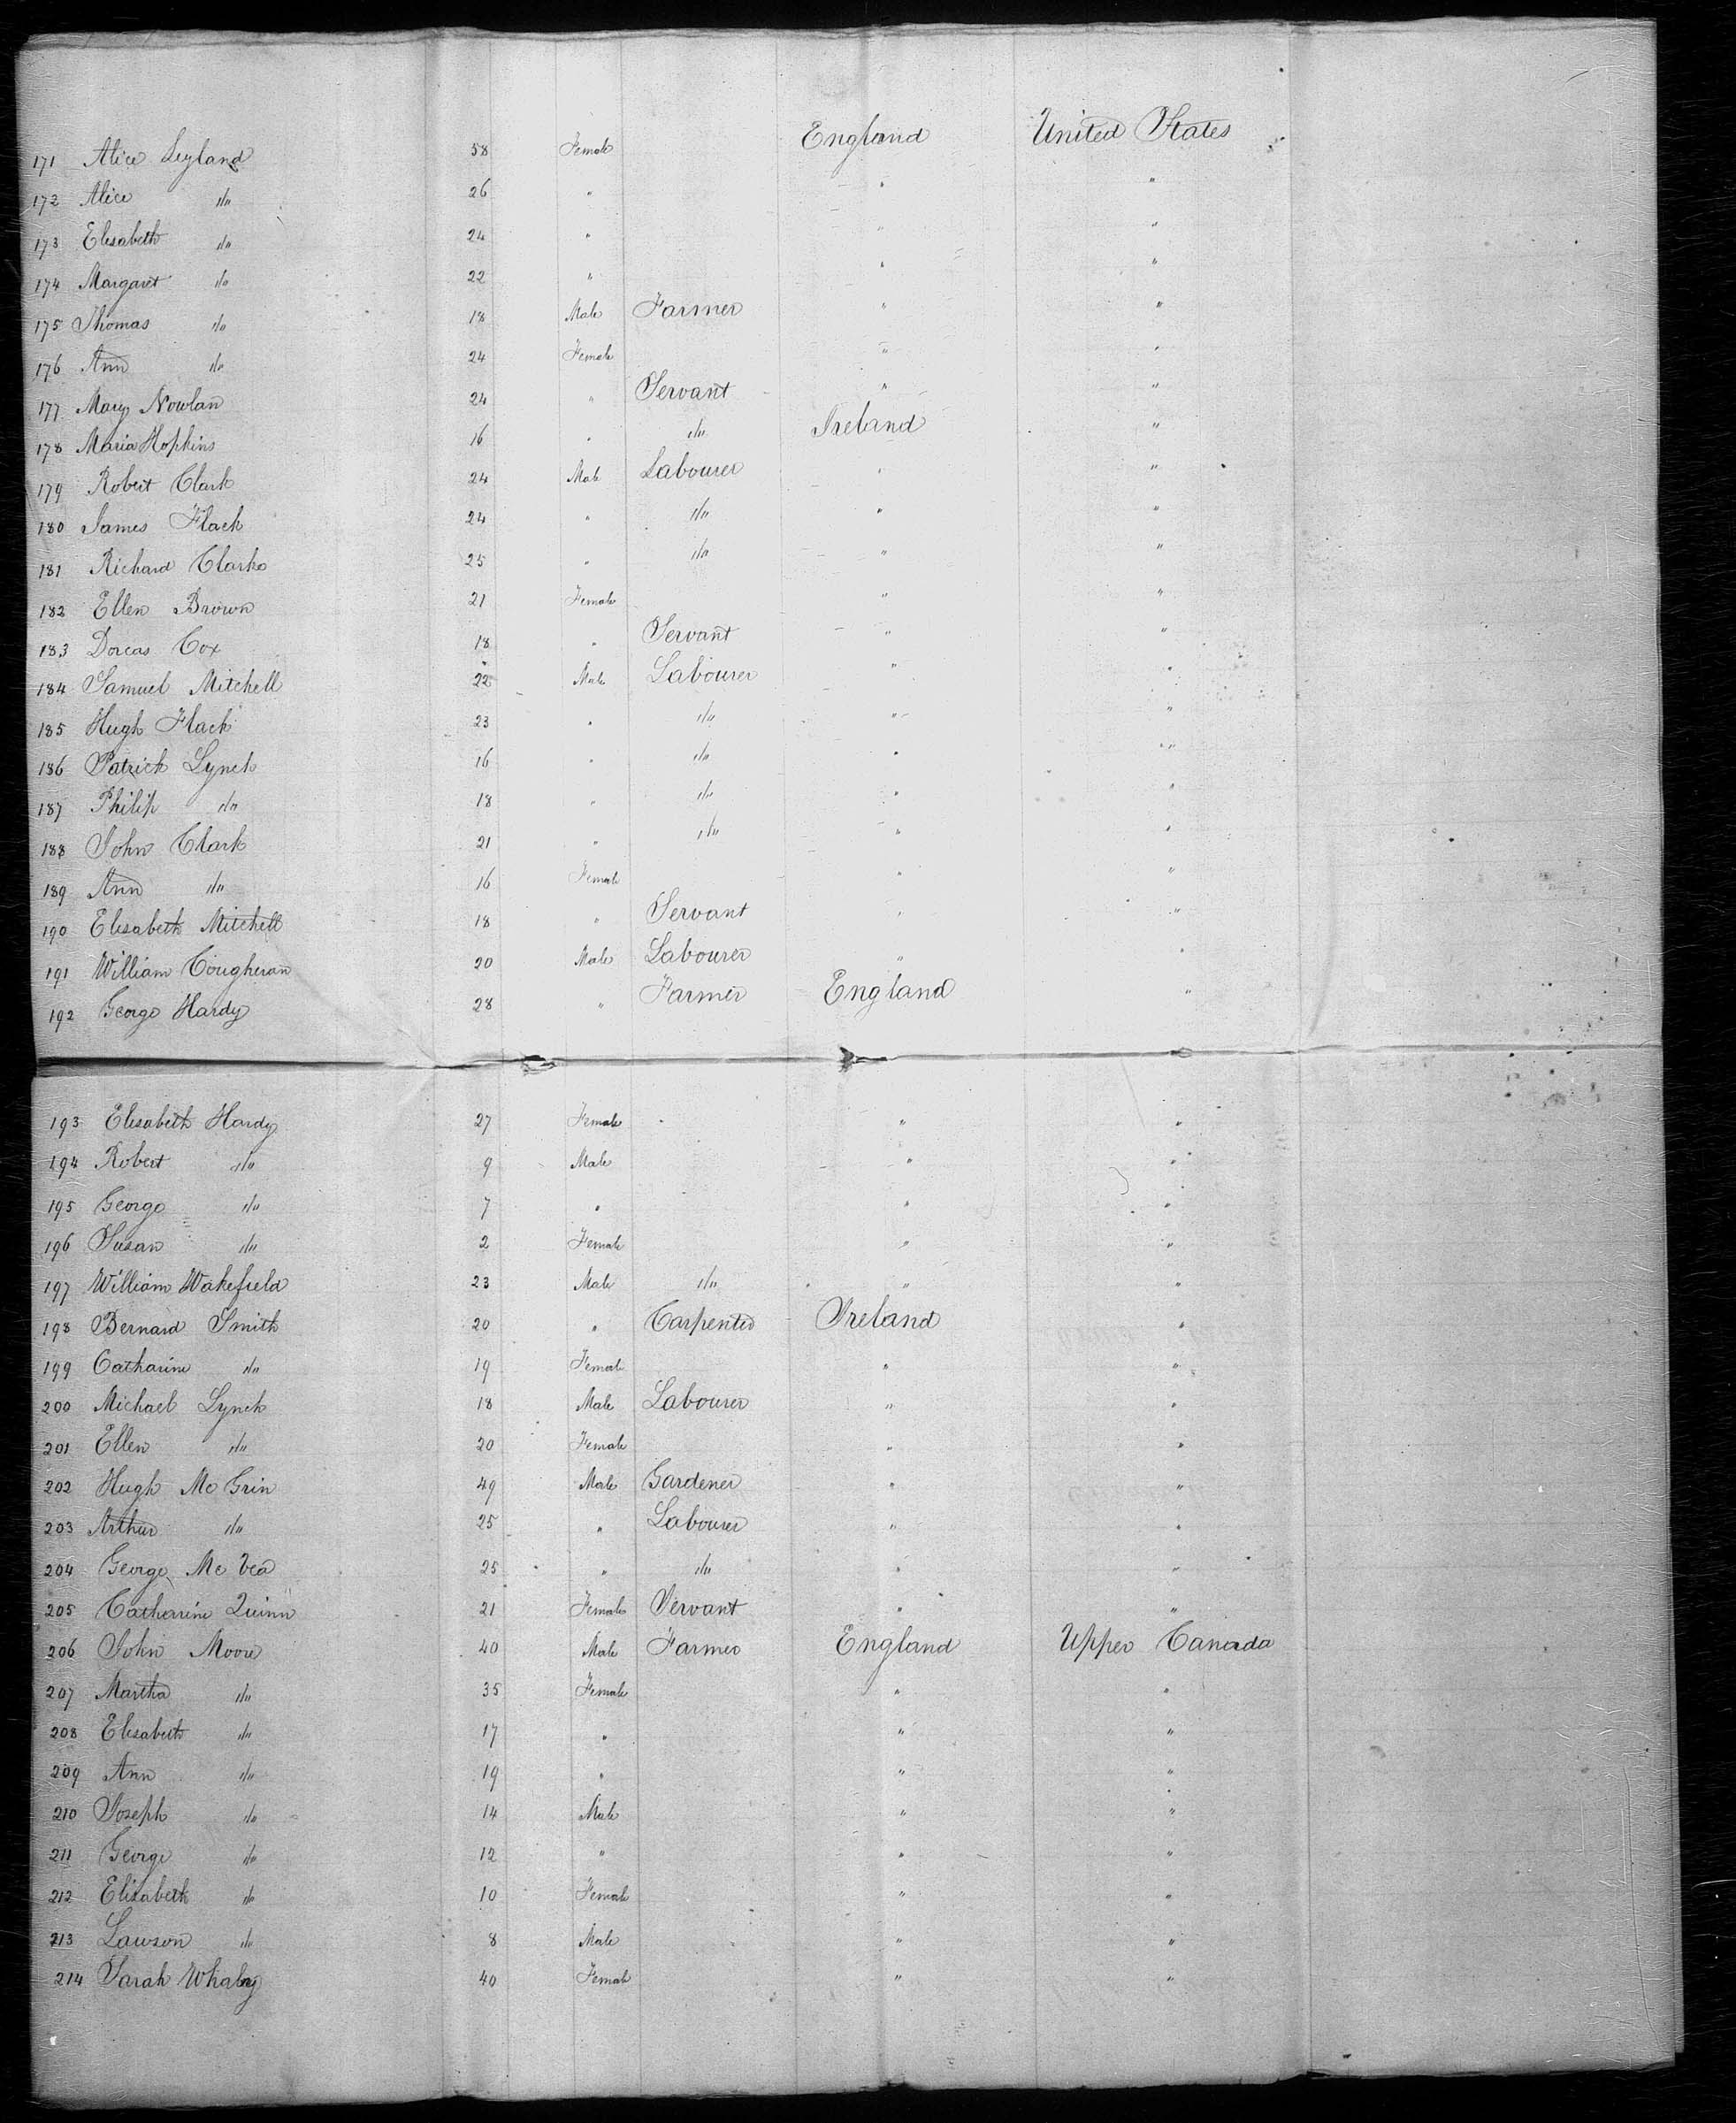 171 Alice Leyland 58 Female England United States
172 Alice do 26 " " "
173 Elisabeth do 24 " " "
174 Margaret do 22 " " "
175 Thomas do 18 Male Farmer " "
176 Ann do 24 Female " "
177 Mary Nowlan 24 " Servant " "
178 Maria Hopkins 16 " do Ireland "
179 Robert Clark 24 Male Labourer " "
180 James Flack 24 " do " "
181 Richard Clarke 25 " do " "
182 Ellen Brown 21 Female " "
183 Dorcas Cox 18 " Servant " "
184 Samuel Mitchell 22 Male Labourer " "
185 Hugh Flack 23 " do " "
186 Patrick Lynch 16 " do " "
187 Philip do 18 " do " "
188 John Clark 21 " do " "
189 Ann do 16 Female " "
190 Elisabeth Mitchell 18 " Servant " "
191 William Cougheran 20 Male Labourer " "
192 George Hardy 28 " Farmer England "
193 Elisabeth Hardy 27 Female " "
194 Robert do 9 Male " "
195 George do 7 " " "
196 Susan do 2 Female " "
197 William Wakefield 23 Male do " "
198 Bernard Smith 20 " Carpenter Ireland "
199 Catharine do 19 Female " "
200 Michael Lynch 18 Male Labourer " "
201 Ellen do 20 Female " "
202 Hugh Mc Grin 49 Male Gardener " "
203 Arthur do 25 " Labourer " "
204 George Mc Vea 25 " do " "
205 Catharine Quinn 21 Female Servant " "
206 John Moore 40 Male Farmer England Upper Canada
207 Martha do 35 Female " "
208 Elisabeth do 17 " " "
209 Ann do 19 " " "
210 Joseph do 14 Male " "
211 George do 12 " " "
212 Elisabeth do 10 Female " "
213 Lawson do 8 Male " "
214 Sarah Whaley 40 Female " "